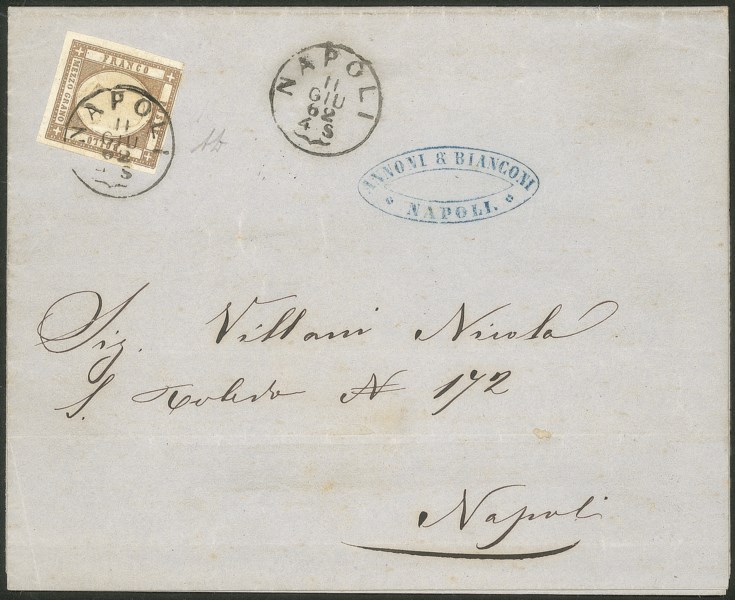 FRANCO
MEZZO GRANO
BOLLO
NAPOLI
11
GIU
62
4 S
NAPOLI
11
GIU
62
4 S
ANNONI & BIANCONI
NAPOLI.
Sig. Villani Nicola
S. Toledo N 172
Napoli